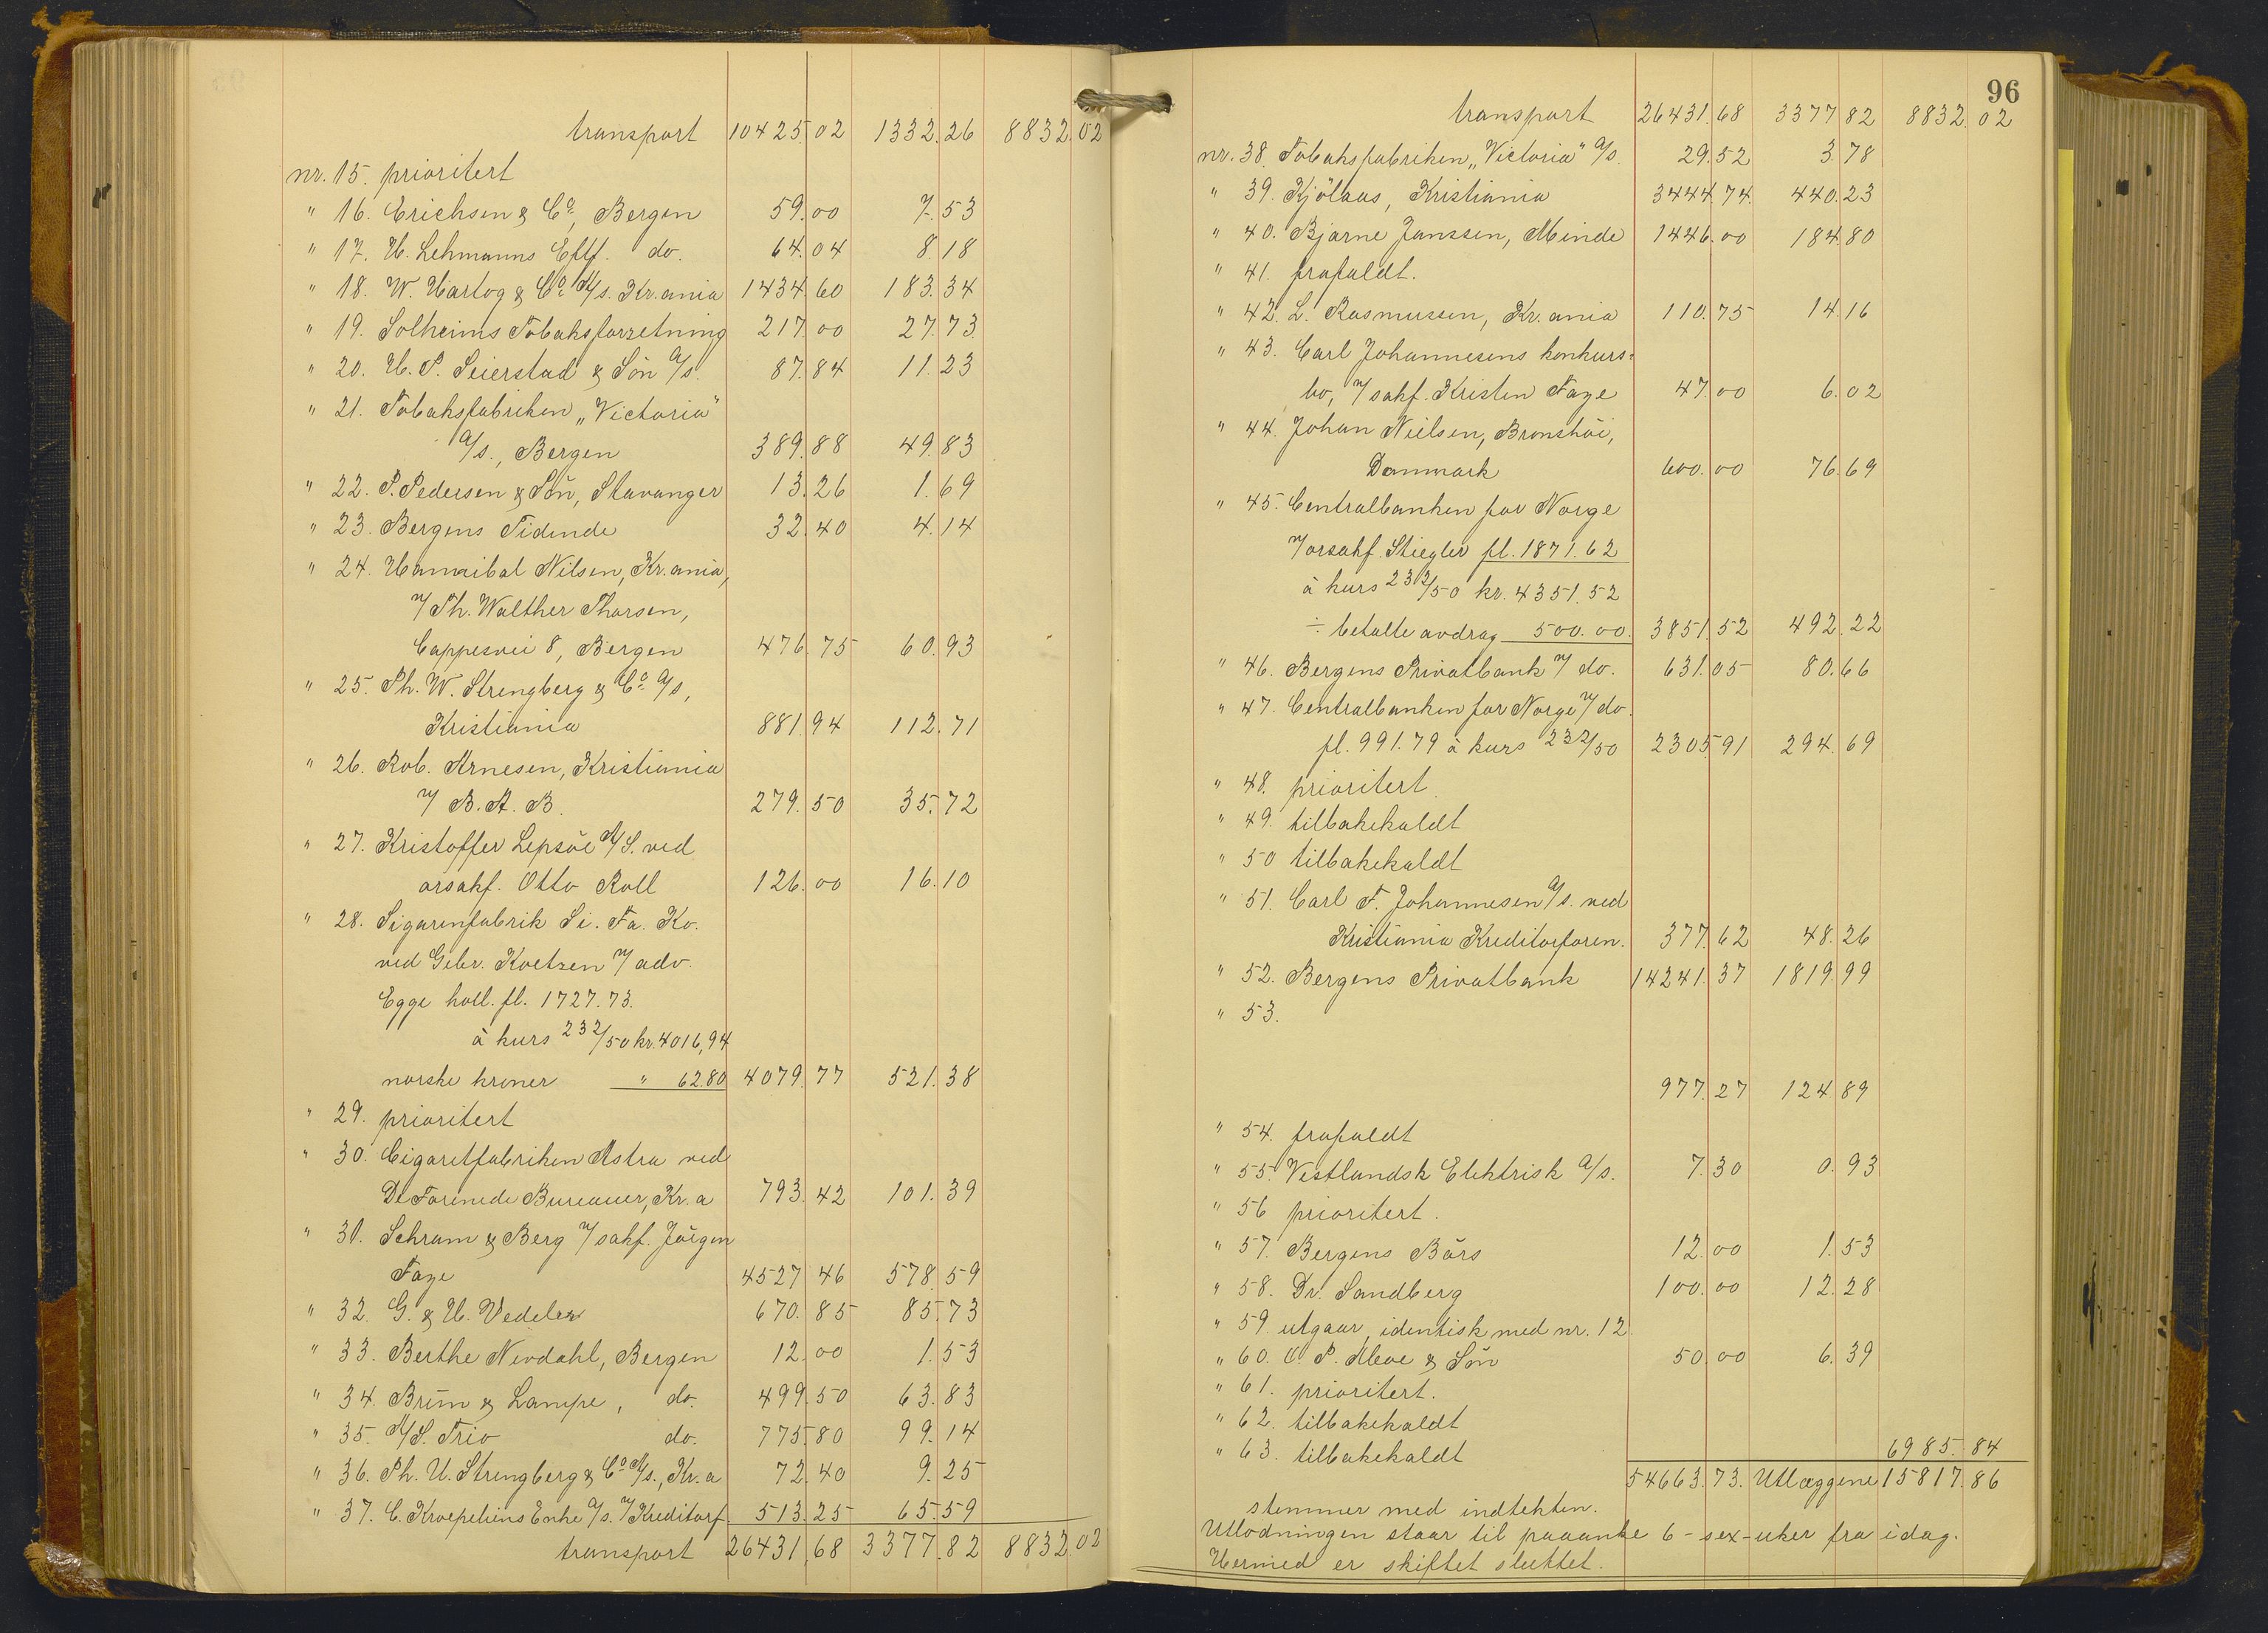 transport 10425.02 1332.26 8832.02
nr. 15. prioritert
" 16. Erichsen & Co, Bergen 59.00 7.53
" 17. H. Lehmanns Eftf. do. 64.04 8.18
" 18. W. Hartog & Co A/s. Kr.ania 1434.60 183.34
" 19. Solheims Tobaksforretning 217.00 27.73.
" 20. H. P. Seierstad & Sön A/s. 87.84 11.23
" 21. Tobaksfabriken „Victoria"
A/s., Bergen 389.88 49.83
" 22. P. Pedersen & Sön, Stavanger 13.26 1.69
" 23. Bergens Tidende 32.40 4.14
" 24. Hannibal Nilsen, Kr.ania,
v/ Th. Walther Thorsen,
Cappesvei 8, Bergen 476.75 60.93
" 25. Th. W. Strengberg & Co A/s,
Kristiania 881.94 112.71
" 26. Rob. Arnesen, Kristiania
v/ B. A. B. 279.50 35.72
" 27. Kristoffer Lepsöe A/S. ved
orsakf. Otto Roll 126.00 16.10
" 28. Sigarenfabrik Si. Fa. Ko.
ved Gebr. Koetzen v/ adv.
Egge holl. fl. 1727.73.
à kurs 232/50 kr. 4016,94
norske kroner " 62.80 4079.77 521.38
" 29. prioritert
" 30. Cigaretfabriken Astra ved
De Forenede Bureauer, Kr.a 793.42 101.39
" 31. Schram & Berg v/ sakf. Jörgen
Faye 4527.46 578.59
" 32. G. & H. Vedeler 670.85 85.73
" 33. Berthe Nevdahl, Bergen 12.00 1.53
" 34. Brün & Lampe, do. 499.50 63.83
" 35. A/S. Trio do. 775.80 99.14
" 36. Th. U. Strengberg & Co A/s., Kr.a 72.40 9.25
" 37. C. Kroepeliens Enke A/s. v/ Kreditorf. 513.25 65.59
transport 26431.68 3377.82 8832.02
96
transport 26431.68 3377.82 8832.02
nr. 38. Tobaksfabriken „Victoria" A/s. 29.52 3.78
" 39. Kjölaas, Kristiania 3444.74. 440.23
" 40. Bjarne Janssen, Minde 1446.00 184.80
" 41. frafaldt.
" 42. L. Rasmussen, Kr.ania 110.75 14.16
" 43. Carl Johannesens konkurs-
bo, v/ sakf. Kristen Faye 47.00 6.02
" 44. Johan Nielsen, Bronshöi,
Danmark 600.00 76.69
" 45. Centralbanken for Norge
v/ orsakf. Stiegler fl. 1871.62
à kurs 232/50 kr. 4351.52
÷ betalte avdrag 500.00. 3851.52 492.22
" 46. Bergens Privatbank v/ do. 631.05 80.66
" 47. Centralbanken for Norge v/ do.
fl. 991.79 à kurs 232/50 2305.91 294.69
" 48. prioritert.
" 49. tilbakekaldt
" 50 tilbakekaldt
" 51. Carl F. Johannesen A/s. ved
Kristiania Kreditorforen. 377.62 48.26
" 52. Bergens Privatbank 14241.37 1819.99
" 53.
977.27 124.89
" 54. frafaldt
" 55. Vestlandsk Elektrisk A/s. 7.30 0.93
" 56 prioritert.
" 57. Bergens Börs 12.00 1.53
" 58. Dr. Sandberg 100.00 12.28
" 59. utgaar, identisk med nr. 12.
" 60. P. Meve & Sön 50.00 6.39
" 61. prioritert.
" 62. tilbakekaldt
" 63. tilbakekaldt 6985.84
54663.73. Utlæggene 15817.86
stemmer med indtekten.
Utlodningen staar til paaanke 6 - sex - uker fra idag.
Hermed er skiftet sluttet.